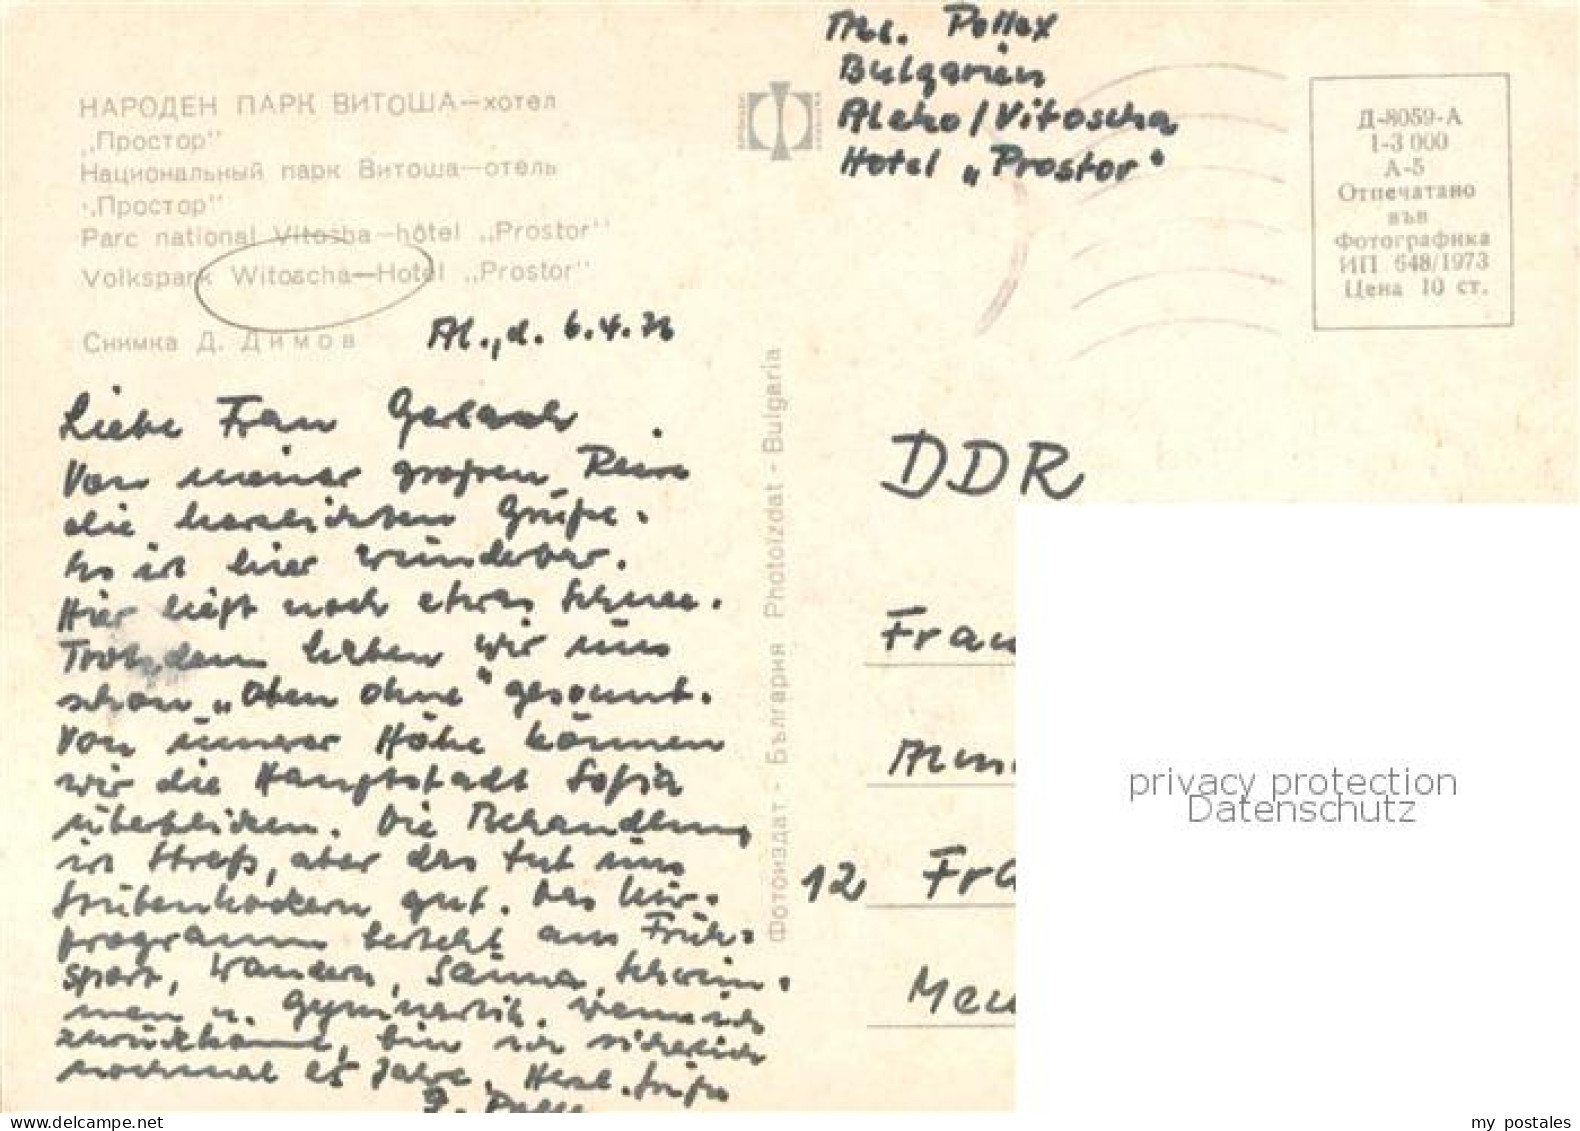 НАРОДЕН ПАРК ВИТОША—хотел
„Простор"
Национальный парк Витоша—отель
„Простор"
Parc national Vitosha—hôtel „Prostor"
Volkspark Witoscha—Hotel „Prostor"
Снимка Д. Димов
Al., d. 6.4.76
Liebe Frau Gerlach
Von meiner großen Reise
die herzlichsten Grüße.
Es ist hier wunderbar.
Hier liegt noch etwas Schnee.
Trotzdem haben wir uns
schon „oben ohne" gesonnt.
Von unserer Höhe können
wir die Hauptstadt Sofia
überblicken. Die Behandlung
ist Streß, aber das tut uns
Stubenhockern gut. Das Kur-
programm besteht aus Früh-
sport, Wandern, Sauna, Schwim-
men u. Gymnastik. Wenn ich
zurückkomme, bin ich sicherlich
nochmal 25 Jahre. Herzl. Grüße
Фотоиздат - България Photoizdat - Bulgaria
Abs. Pollex
Bulgarien
Aleko/Vitoscha
Hotel „Prostor"
Д-8059-А
1-3 000
А-5
Отпечатано
във
Фотографика
ИП 648/1973
Цена 10 ст.
DDR
Frau
12 Fra
privacy protection
Datenschutz
my postales